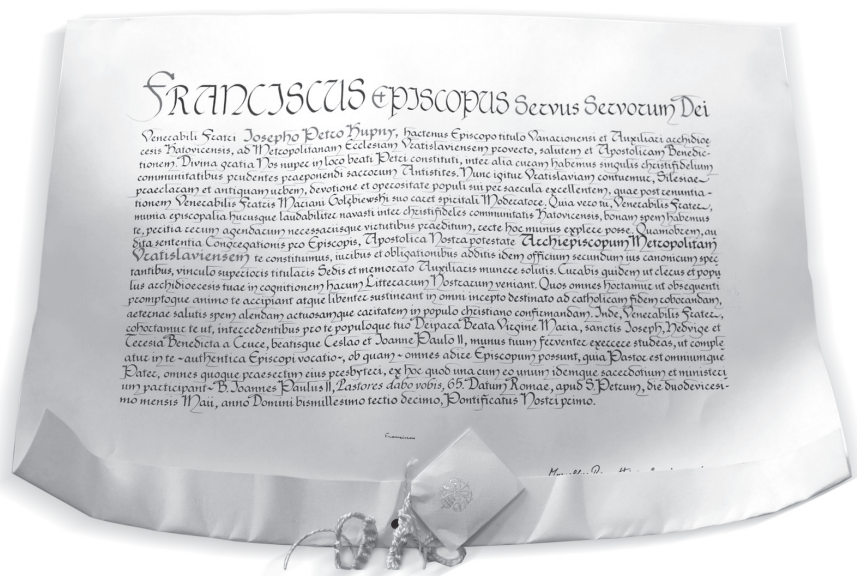 FRANCISCUS EPISCOPUS Servus Servorum Dei
Venerabili Fratri Iosepho Petro Kupny, hactenus Episcopo titulo Vanarionensi et Auxiliari archidioe
cesis Katovicensis, ad Metropolitanam Ecclesiam Vratislaviensem provecto, salutem et Apostolicam Benedic-
tionem. Divina gratia Nos nuper in loco beati Petri constituti, inter alia curam habemus singulis christifidelium
communitatibus prudentes praeponendi sacrorum Antistites. Nunc igitur Vratislaviam contuemur, Silesiae
praeclaram et antiquam urbem, devotione et operositate populi sui per saecula excellentem, quae post renuntia-
tionem Venerabilis Fratris Mariani Gołębiewski suo caret spiritali Moderatore. Quia vero tu, Venerabilis Frater,
munia episcopalia hucusque laudabiliter navasti inter christifideles communitatis Katovicensis, bonam spem habemus
te, peritia rerum agendarum necessariisque virtutibus praeditum, recte hoc munus explere posse. Quamobrem, au
dita sententia Congregationis pro Episcopis, Apostolica Nostra potestate Archiepiscopum Metropolitam
Vratislaviensem te constituimus, iuribus et obligationibus additis idem officium secundum ius canonicum spec
tantibus, vinculo superioris titularis Sedis et memorato Auxiliaris munere solutis. Curabis quidem ut clerus et popu
lus archidioecesis tuae in cognitionem harum Litterarum Nostrarum veniant. Quos omnes hortamur ut obsequenti
promptoque animo te accipiant atque libenter sustineant in omni incepto destinato ad catholicam fidem roborandam,
aeternae salutis spem alendam actuosamque caritatem in populo christiano confirmandam. Inde, Venerabilis Frater,
cohortamur te ut, intercedentibus pro te populoque tuo Deipara Beata Virgine Maria, sanctis Ioseph, Hedvige et
Teresia Benedicta a Cruce, beatisque Ceslao et Ioanne Paulo II, munus tuum ferventer exercere studeas, ut comple
atur in te -authentica Episcopi vocatio-, ob quam - omnes adire Episcopum possunt, quia Pastor est omniumque
Pater, omnes quoque praesertim eius presbyteri, ex hoc quod una cum eo unum idemque sacerdotium et ministeri
um participant- B. Ioannes Paulus II, Pastores dabo vobis, 65. Datum Romae, apud S. Petrum, die duodevicesi-
mo mensis Maii, anno Domini bismillesimo tertio decimo, Pontificatus Nostri primo.
Franciscus